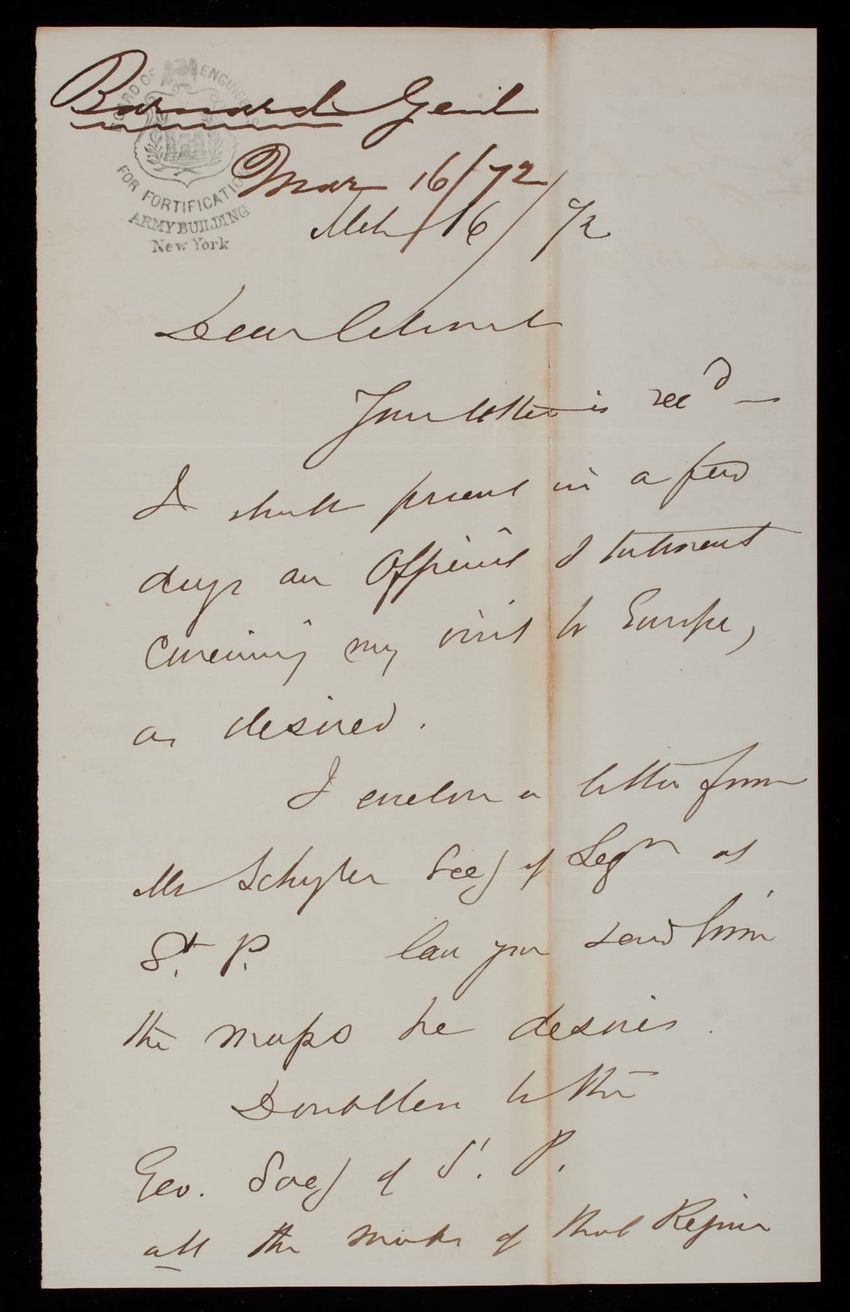 BOARD OF ENGINEERS
FOR FORTIFICATION
ARMY BUILDING
New York
Barnard Genl
Mar 16/72
Mch 16/72
Dear Colonel
Your letter is recd —
I shall present in a few
days an Official Statement
concerning my visit to Europe,
as desired.
I enclose a letter from
Mr Schuyler Secy of Legn at
St. P. Can you send him
the maps he desires.
Doubtless to the
Geo. Socy of St. P.
all the of that Region